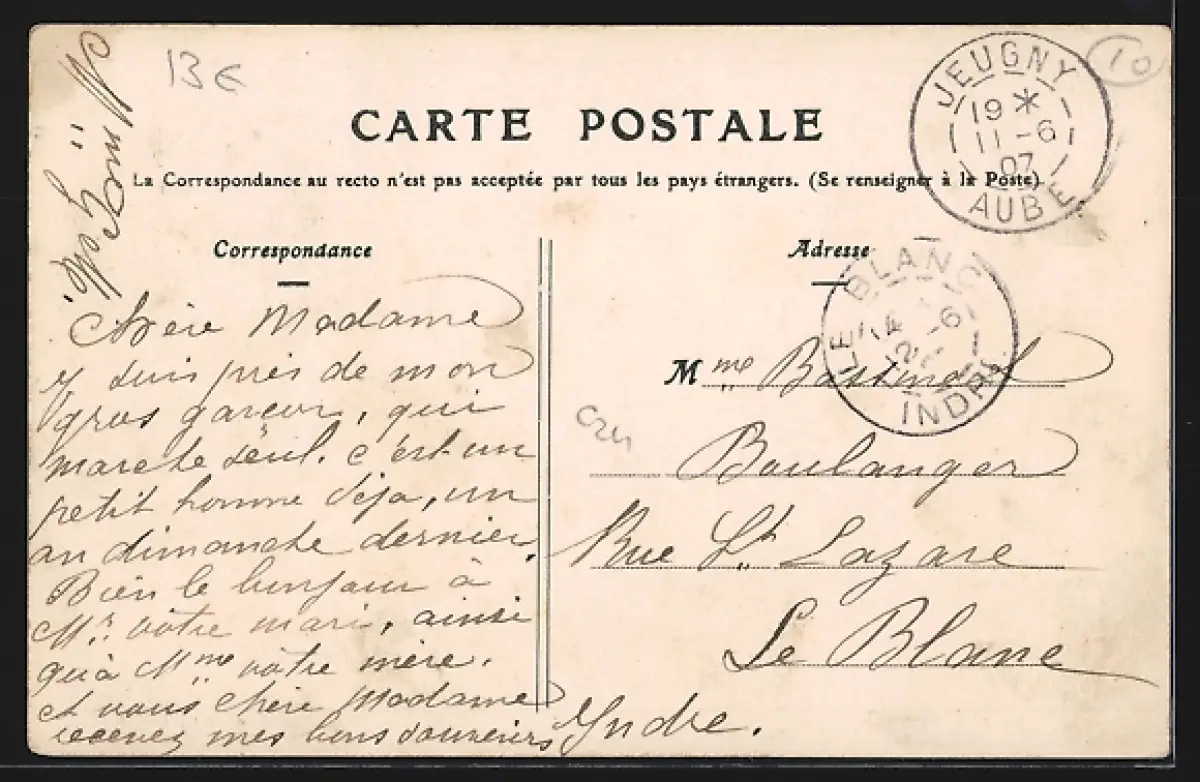 13 €
10
CARTE POSTALE
La Correspondance au recto n'est pas acceptée par tous les pays étrangers. (Se renseigner à la Poste)
JEUGNY
19 *
11 -6
07
AUBE
Correspondance
Chère Madame
Y suis près de mon
gros garçon, qui
marche seul. c'est un
petit homme déja, un
an dimanche dernier.
Bien le bonjour à
Mr. votre mari, ainsi
qu'à Mme votre mère.
et vous chère Madame
recevez mes bons souvenirs
Adresse
LE BLANC
-6
INDRE
Mme
Boulanger
Rue St. Lazare
Le Blanc
Yndre.